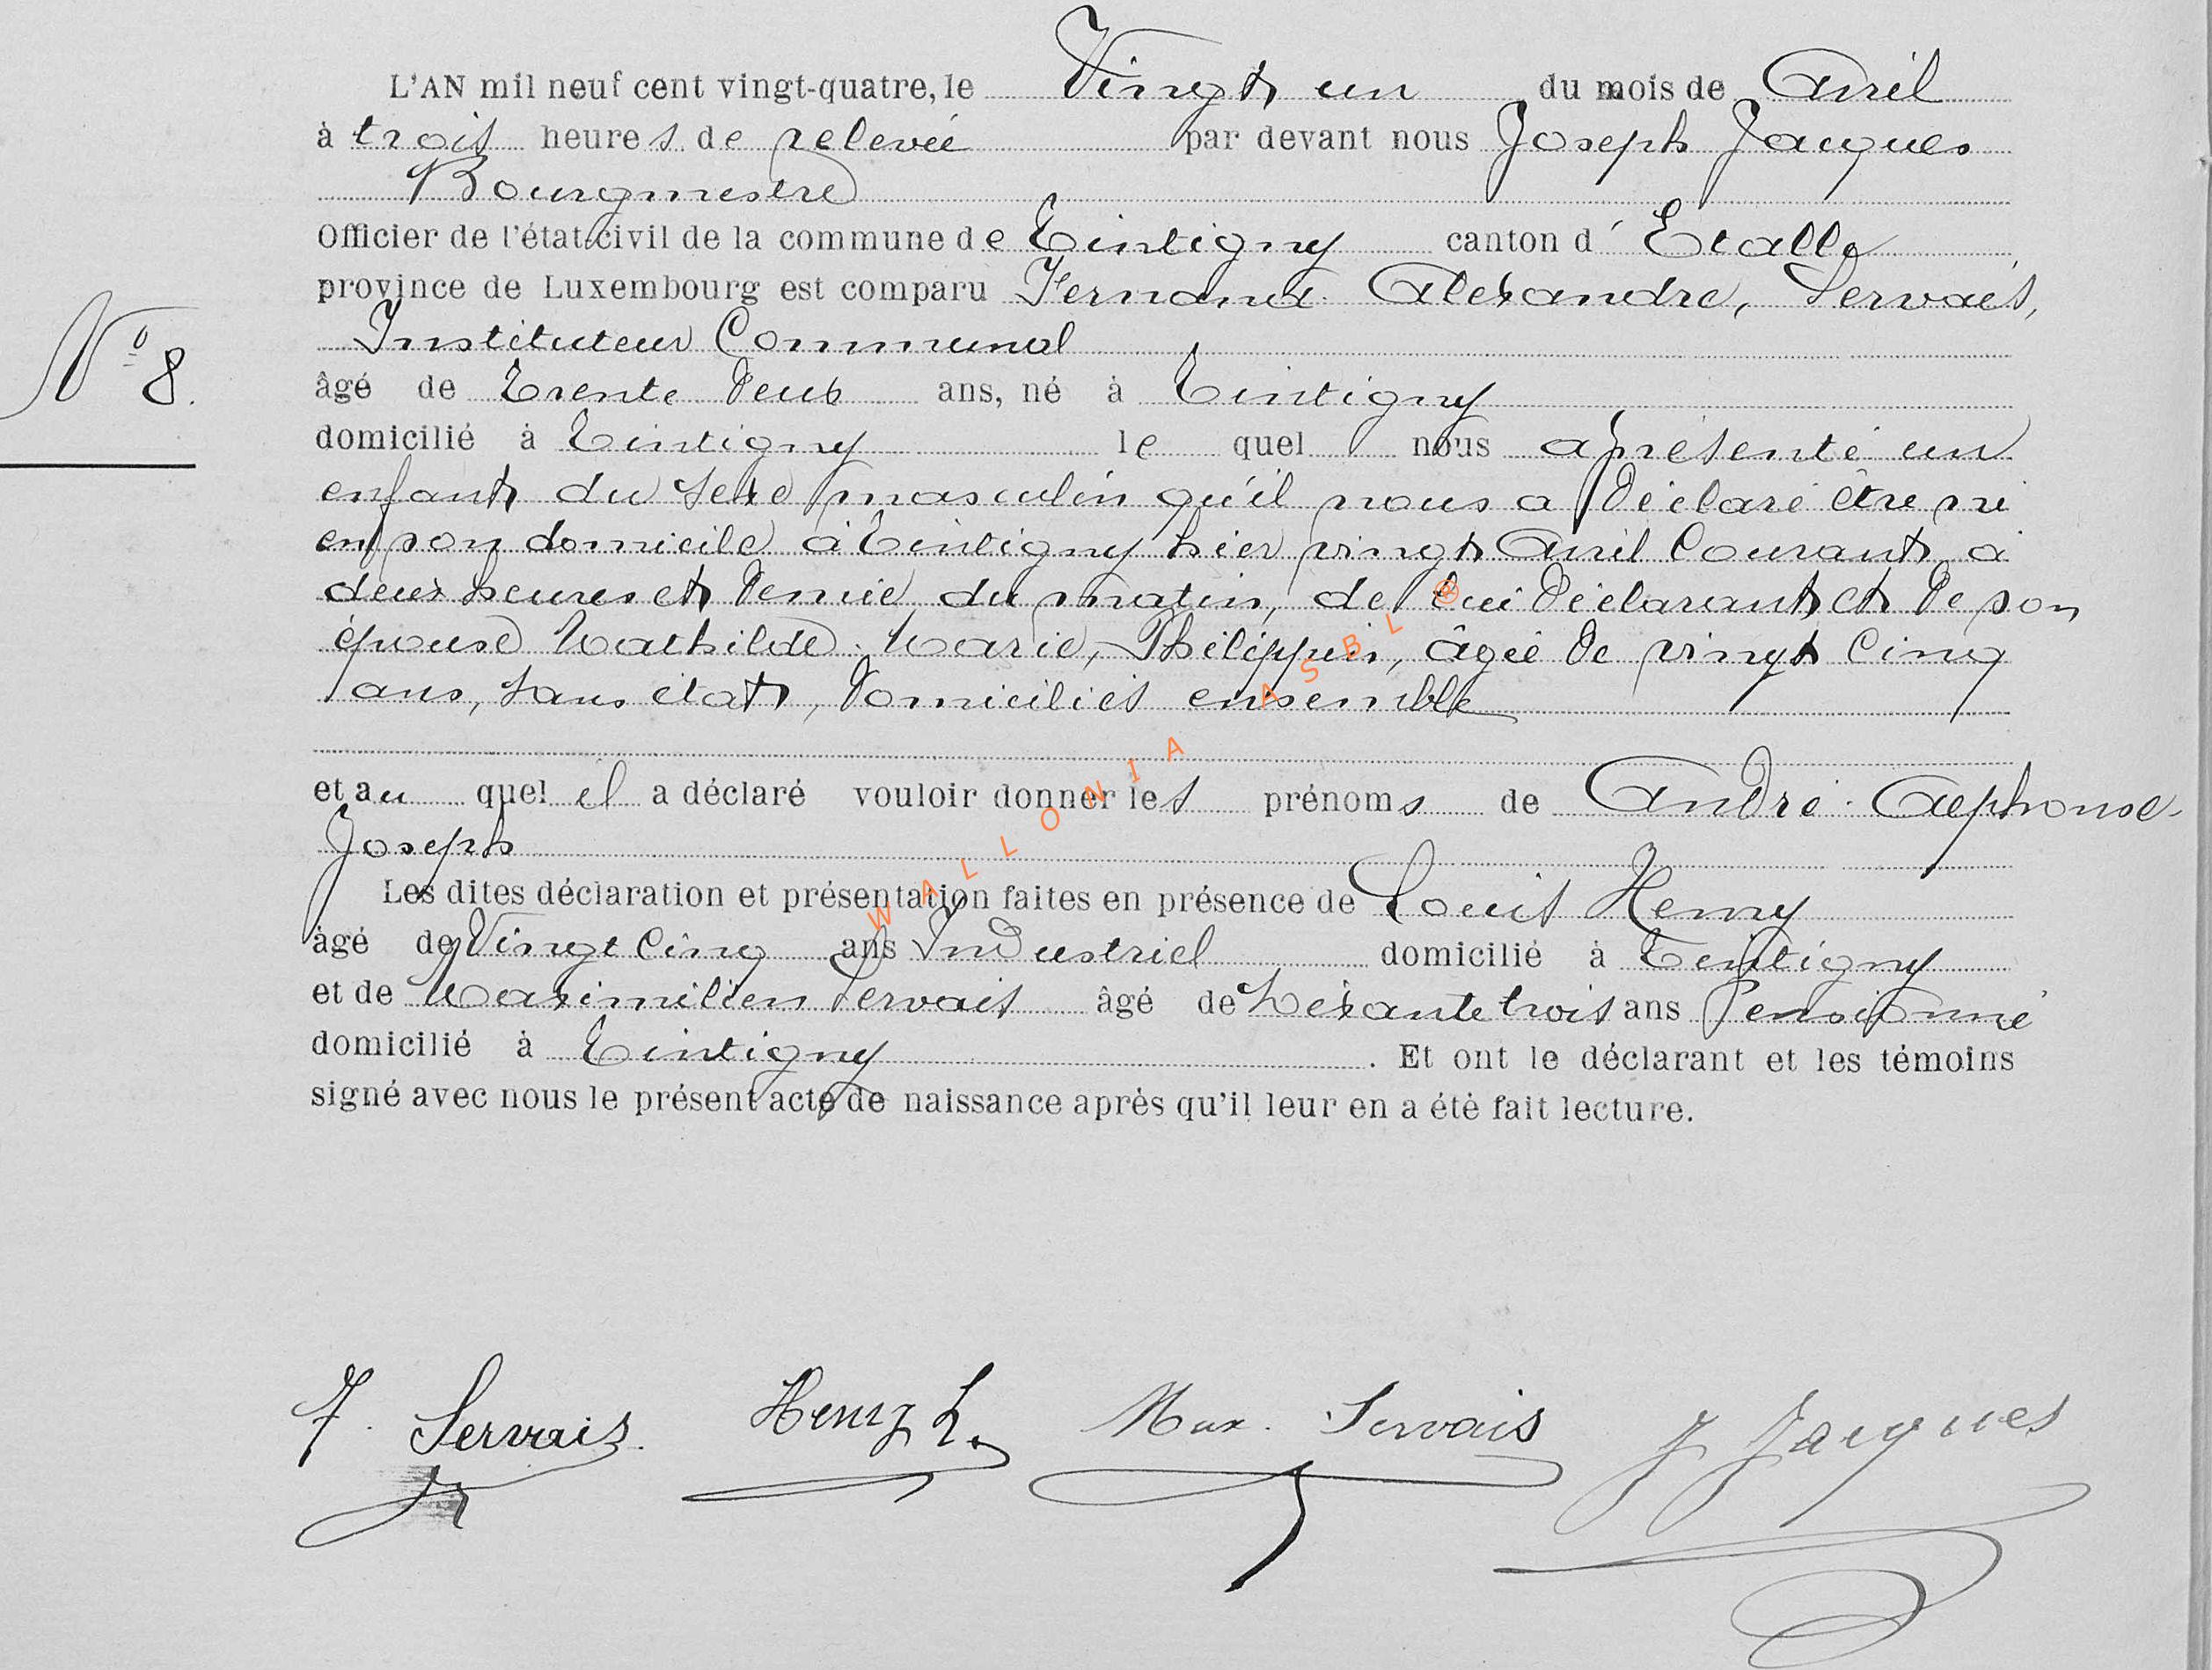 L'AN mil neuf cent vingt-quatre, le Vingt un du mois de Avril
à trois heures de relevée par devant nous Joseph Jacques
Bourgmestre
Officier de l'état-civil de la commune de Tintigny canton d'Etalle
province de Luxembourg est comparu Fernand Alexandre, Servais,
Instituteur Communal
N° 8.
âgé de trente deux ans, né à Tintigny
domicilié à Tintigny lequel nous a présenté un
enfant du sexe masculin qu'il nous a déclaré être né
en son domicile à Tintigny hier vingt Avril Courant à
deux heures et demie du matin, de lui déclarant et de son
épouse Mathilde Marie, Philippin, âgée de vingt Cinq
ans, sans état, domiciliés ensemble
et au quel il a déclaré vouloir donner les prénoms de André Alphonse
Joseph
Les dites déclaration et présentation faites en présence de Louis Henry
âgé de Vingt Cinq ans Industriel domicilié à Tintigny
et de Maximilien Servais âgé de soixante trois ans Pensionné
domicilié à Tintigny. Et ont le déclarant et les témoins
signé avec nous le présent acte de naissance après qu'il leur en a été fait lecture.
F. Servais. Henry L. Max. Servais J Jacques
WALLONIA ASBL ®